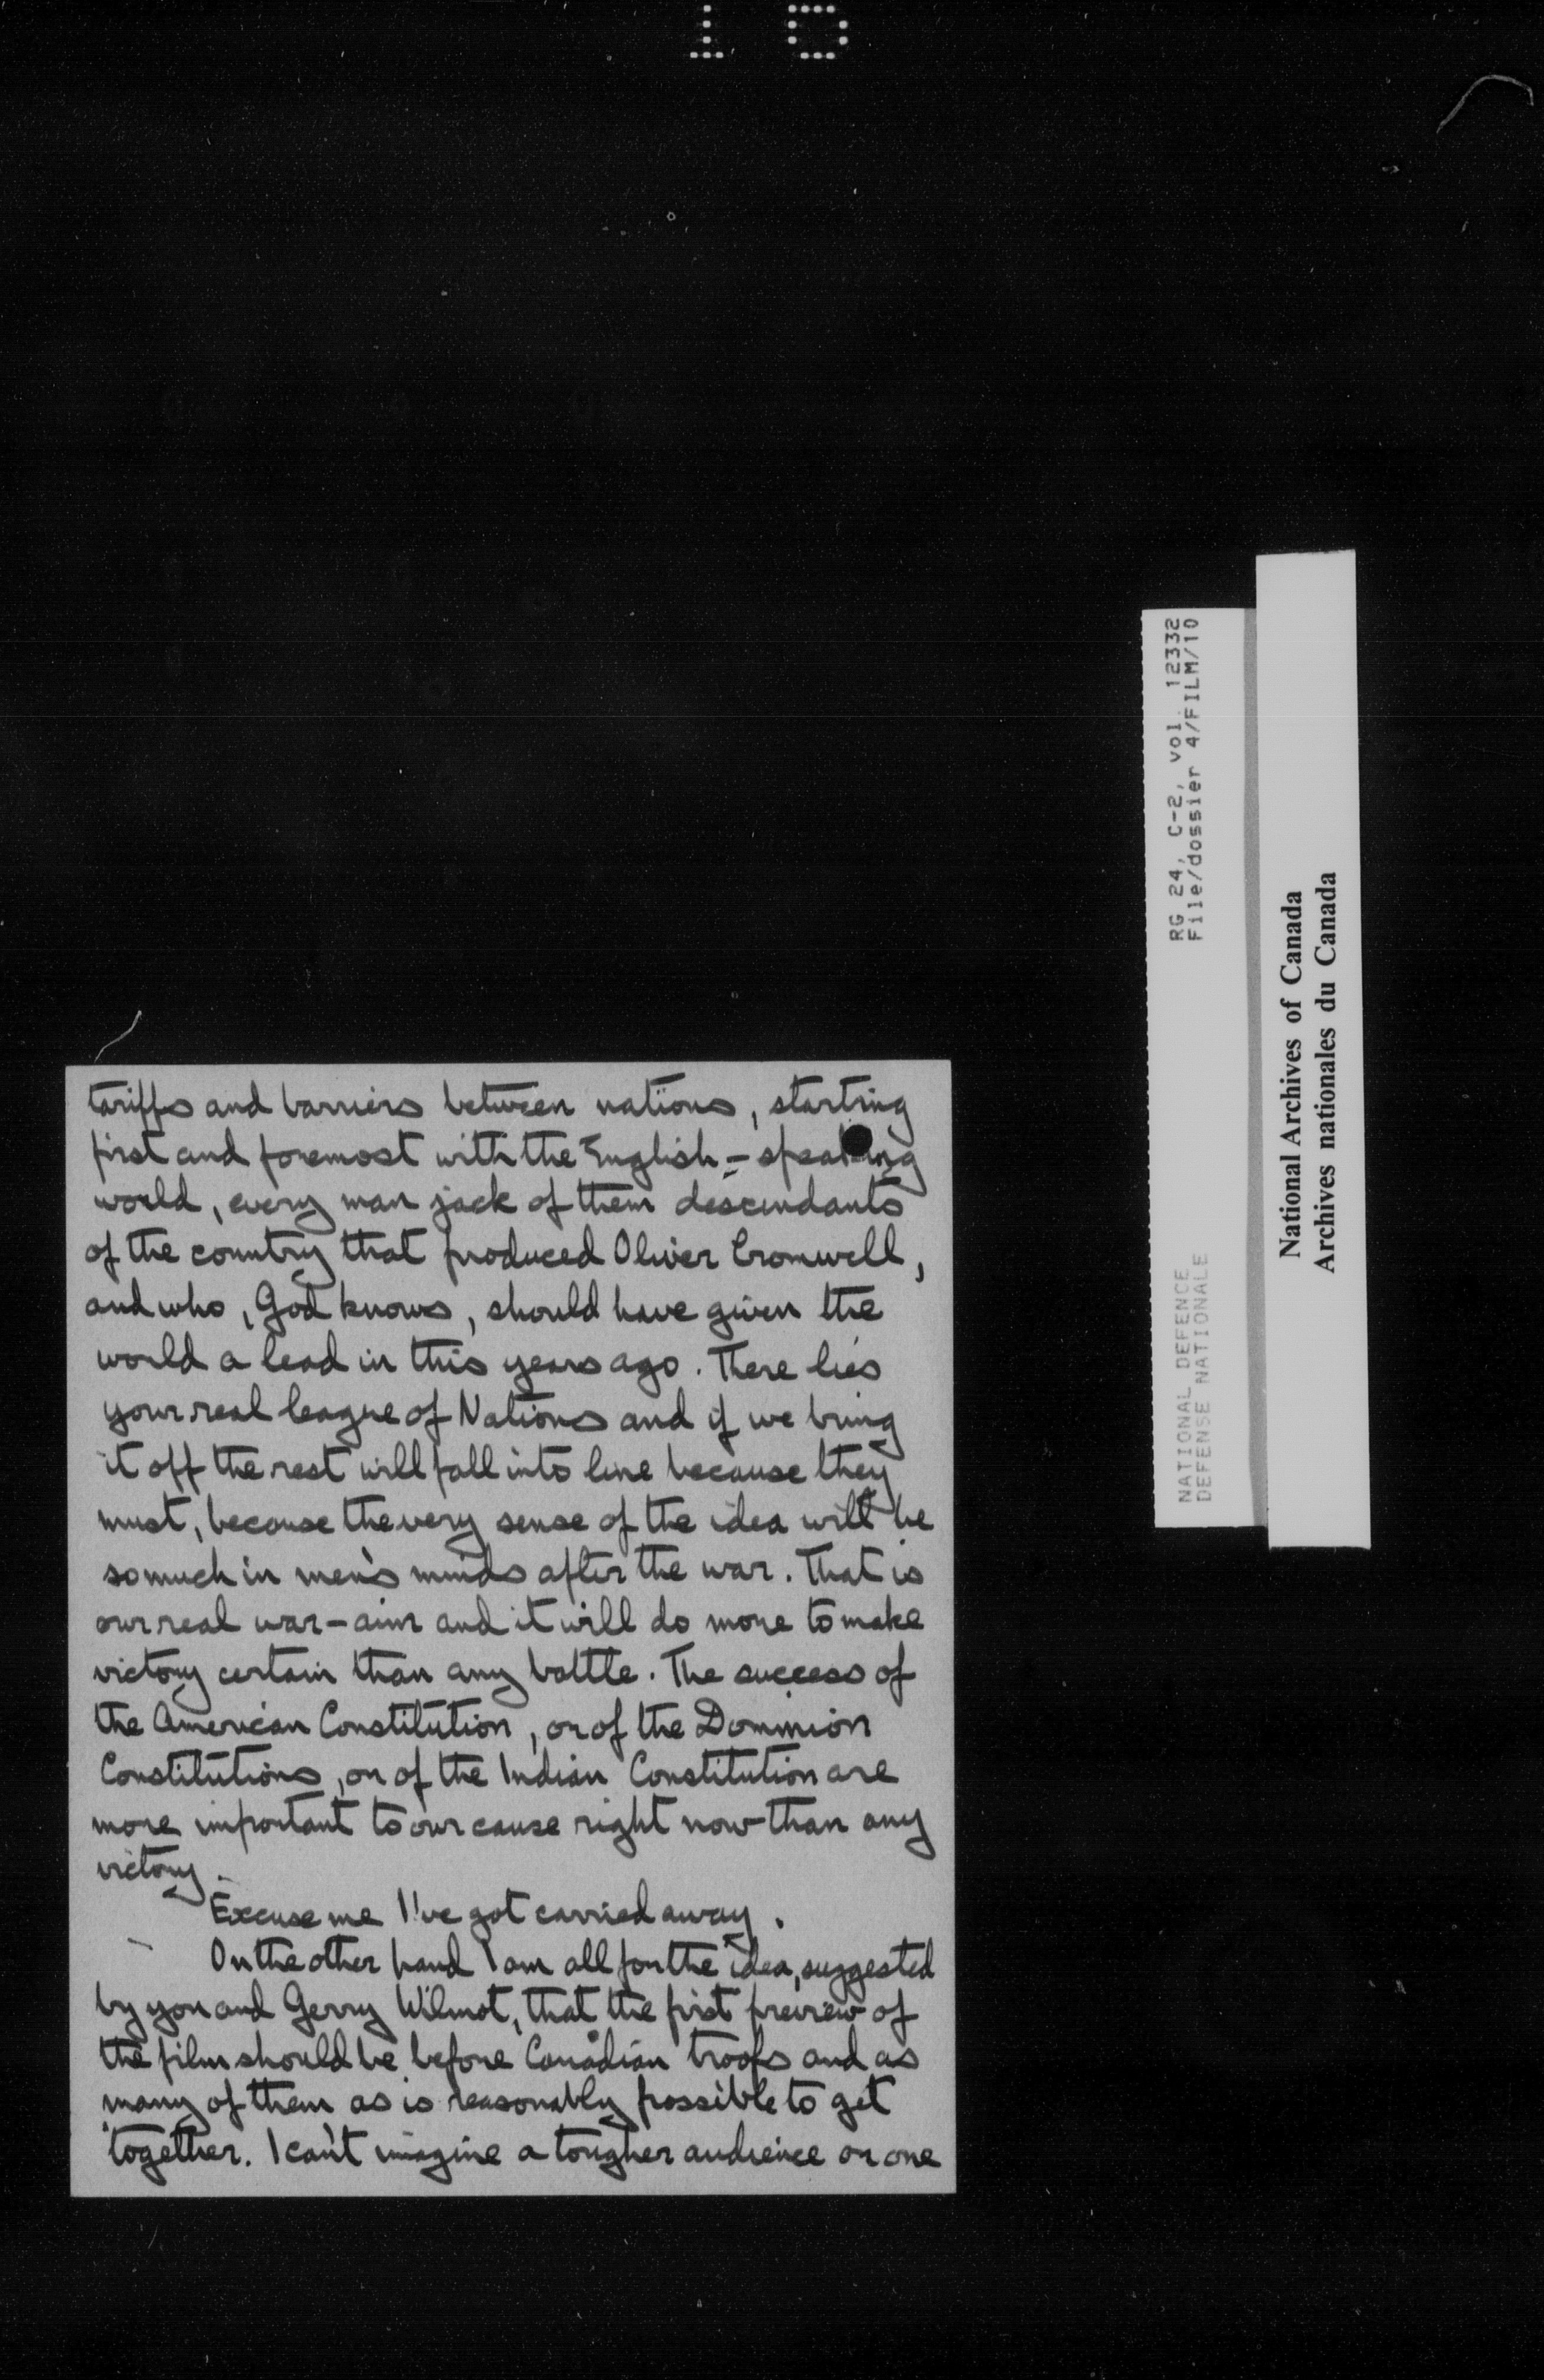 10
tariffs and barriers between nations, starting
first and foremost with the English-speaking
world, every man jack of them descendants
of the country that produced Oliver Cromwell,
and who, God knows, should have given the
world a lead in this years ago. There lies
your real league of Nations and if we bring
it off the rest will fall into line because they
must, because the very sense of the idea will be
so much in men's minds after the war. That is
our real war-aim and it will do more to make
victory certain than any battle. The success of
the American Constitution, or of the Dominion
Constitutions, or of the Indian Constitution are
more important to our cause right now than any
victory.
Excuse me I've got carried away.
On the other hand I am all for the idea, suggested
by you and Gerry Wilmot, that the first preview of
the film should be before Canadian troops and as
many of them as is reasonably possible to get
together. I can't imagine a tougher audience or one
RG 24, C-2, vol. 12332
File/dossier 4/FILM/10
NATIONAL DEFENCE
DEFENSE NATIONALE
National Archives of Canada
Archives nationales du Canada